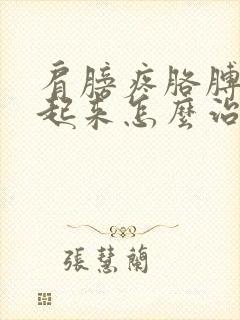 肩膀疼胳膊
起來怎麼治
張慧蘭